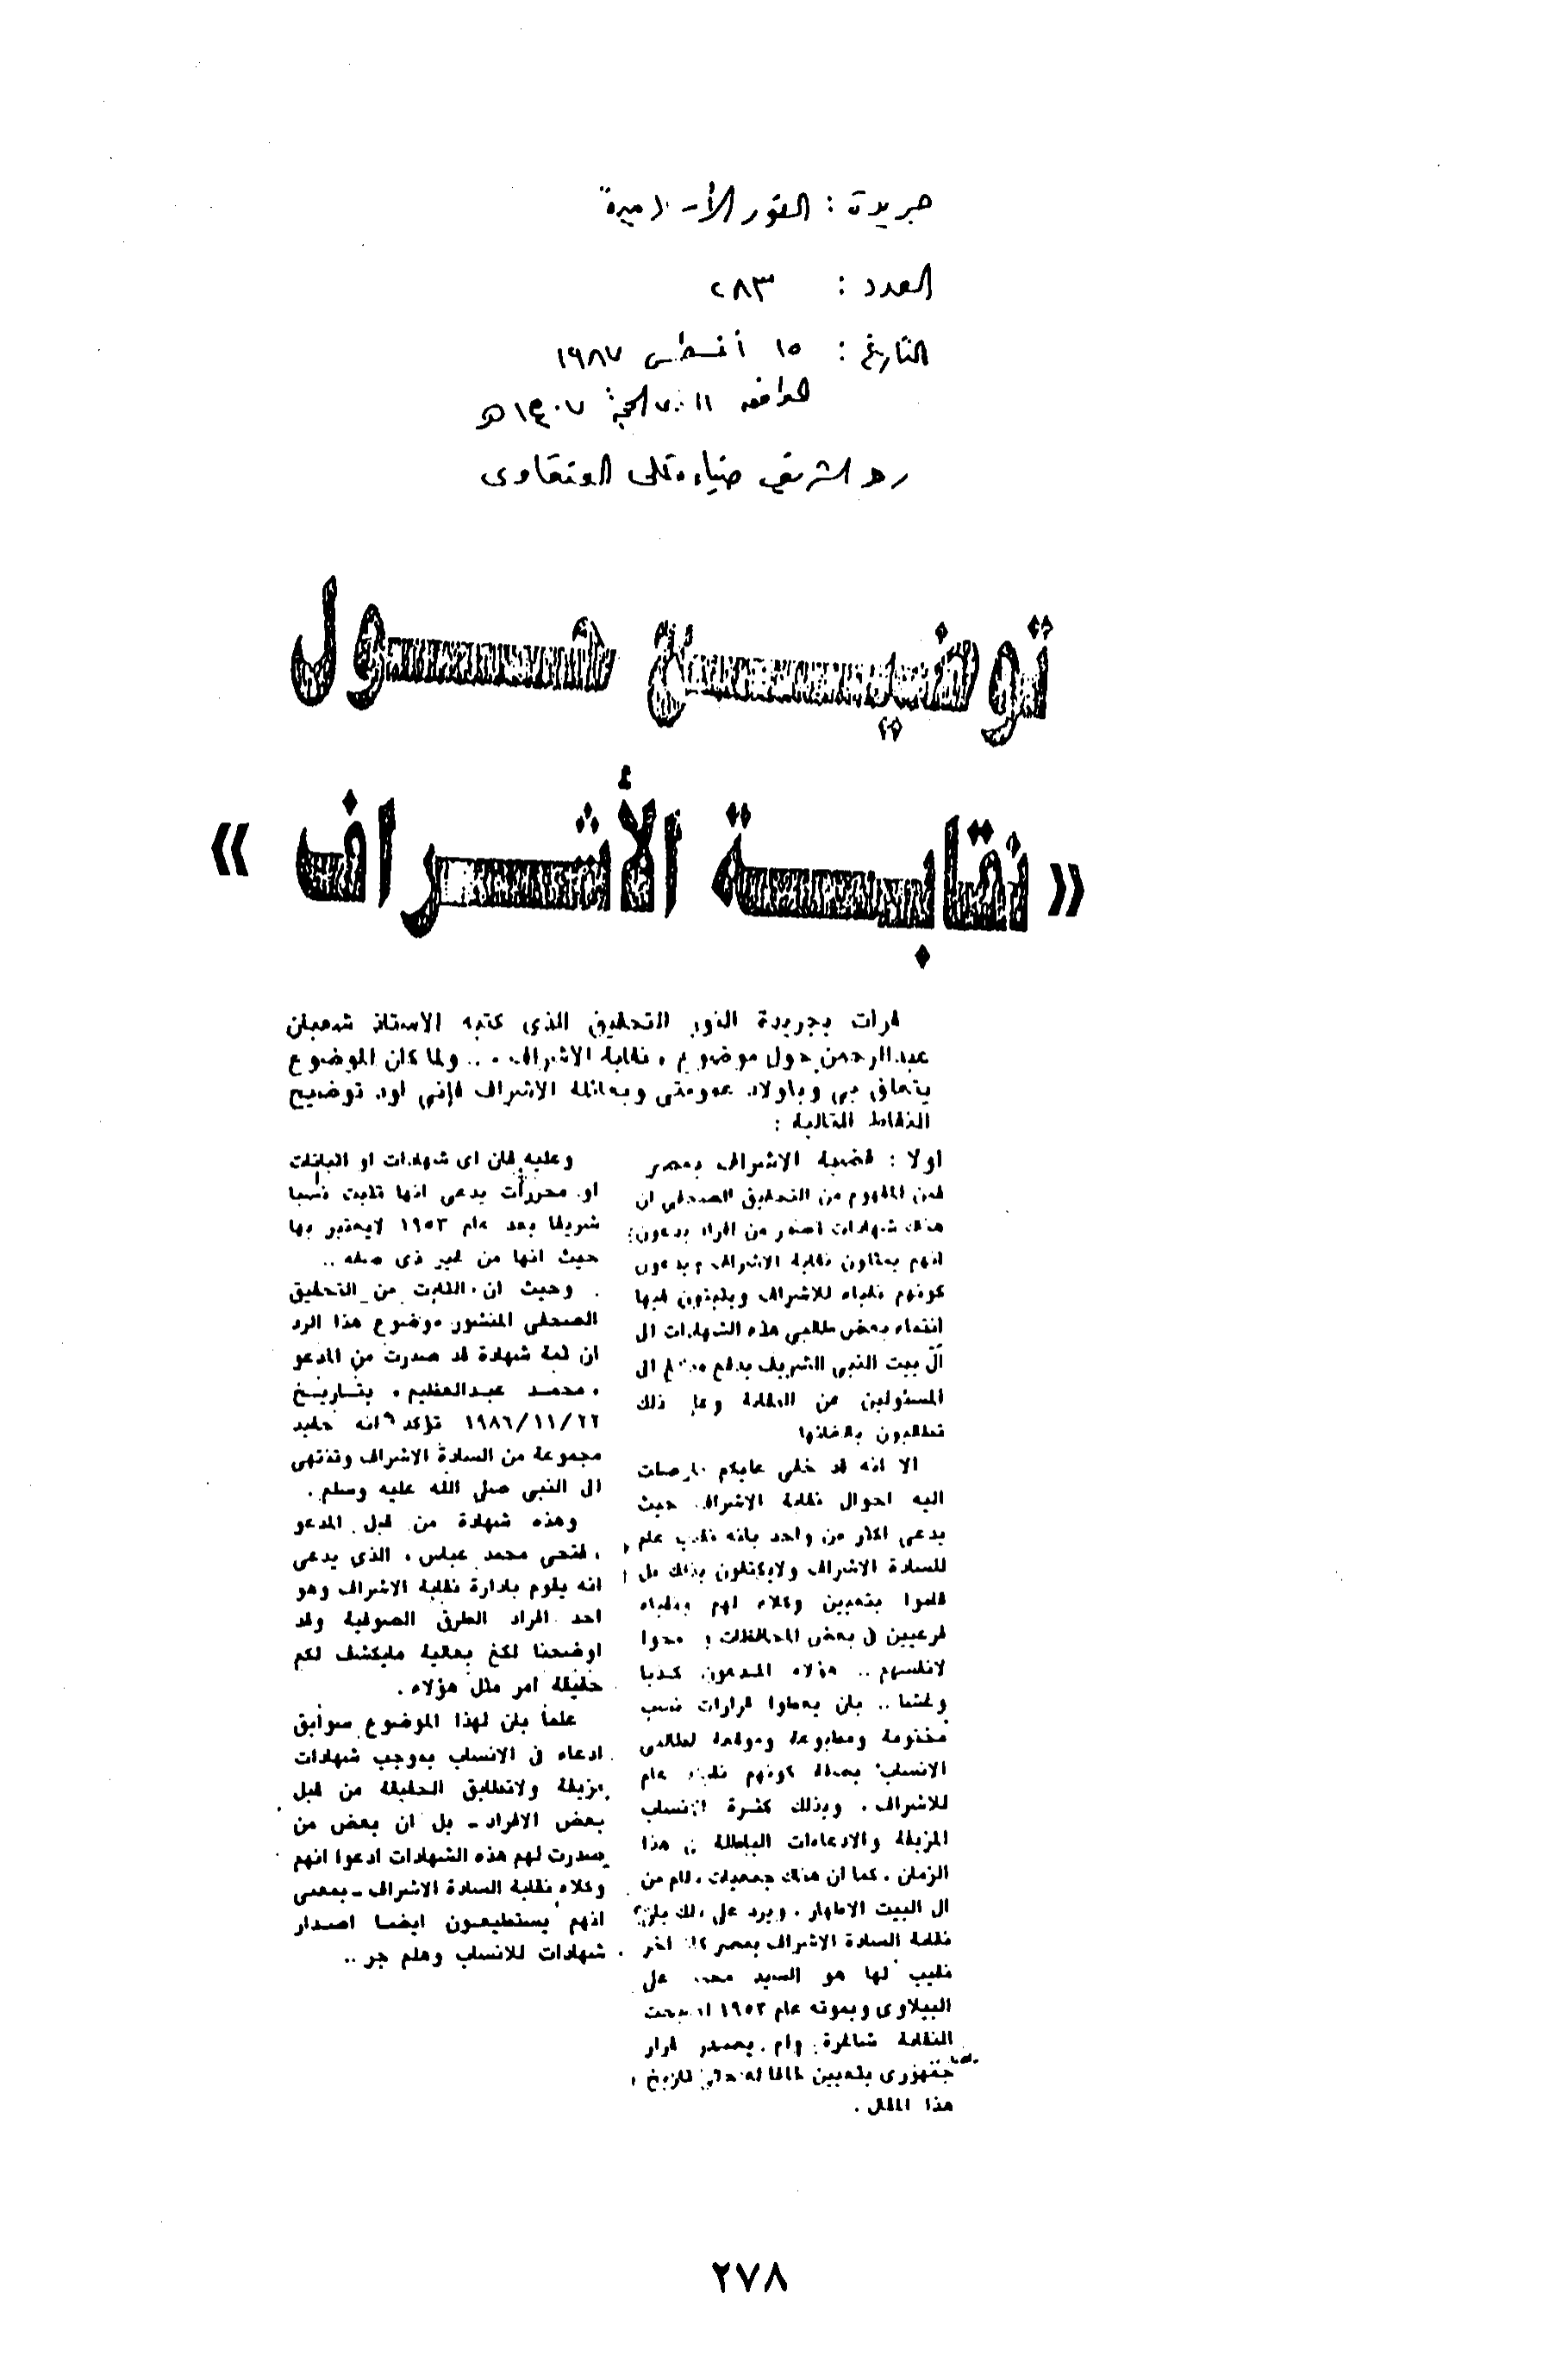 جريدة : النور الأسلامية
العدد : ٢٨٣
التاريخ : ١٥ أغسطس ١٩٨٧
الموافق ١١ ذى الحجة ١٤٠٧ هـ
رد الشريف ضياء قللى العنقاوى
توضيــح حــول
« نقابــة الأشــراف »
قرات بجريدة النور التحقيق الذى كتبه الاستاذ شعبان
عبدالرحمن حول موضوع « نقابة الاشراف » .. ولما كان الموضوع
يتعلق بى وباولاد عمومتى وبعائلة الاشراف فإنى اود توضيح
النقاط التالية :
اولا : قضية الاشراف بمصر
فمن المفهوم من التحقيق الصحفى ان
هناك شهادات تصدر من افراد يدعون
انهم يمثلون نقابة الاشراف ويدعون
كونهم نقباء للاشراف ويثبتون فيها
انتماء بعض طالبى هذه الشهادات الى
آل بيت النبى الشريف بدفع مبالغ الى
المسئولين عن النقابة وعلى ذلك
تطالبون بالغائها
الا انه قد خفى عليكم ماوصلت
اليه احوال نقابة الاشراف حيث
يدعى اكثر من واحد بانه نقيب عام
للسادة الاشراف ولايكتفون بذلك بل
قاموا بتعيين وكلاء لهم ونقباء
فرعيين فى بعض المحافظات
لانفسهم .. هؤلاء المدعون كذبا
وغشا .. بان يعطوا قرارات نسب
مختومة ومطبوعة وموقعة لطالبى
الانساب بصفة كونهم نقيب عام
للاشراف . وبذلك كثرة الانساب
المزيفة والادعاءات الباطلة فى هذا
الزمان . كما ان هناك جمعيات من
ال البيت الاطهار . ويرد على ذلك بان
نقابة السادة الاشراف بمصر كان اخر
نقيب لها هو السيد محمد على
الببلاوى وبموته عام ١٩٥٣ اصبحت
النقابة شاغرة ولم يصدر قرار
جمهورى بتعيين خلفا له حتى تاريخ
هذا المقال .
وعليه فان اى شهادات او اثباتات
او محررات يدعى انها تثبت نسبا
شريفا بعد عام ١٩٥٣ لايعتبر بها
حيث انها من غير ذى صفه ..
وحيث ان الثابت من التحقيق
الصحفى المنشور موضوع هذا الرد
ان ثمة شهادة قد صدرت من المدعو
« محمد عبدالعظيم » بتاريخ
١٩٨٦/١١/٢٢ تؤكد انه حفيد
مجموعة من السادة الاشراف وتنتهى
الى النبى صلى الله عليه وسلم .
وهذه شهادة من قبل المدعو
« فتحى محمد عباس » الذى يدعى
انه يقوم بادارة نقابة الاشراف وهو
احد افراد الطرق الصوفية وقد
اوضحنا لكم بعاليه مايكشف لكم
حقيقة امر مثل هؤلاء .
علما بان لهذا الموضوع سوابق
ادعاء فى الانساب بموجب شهادات
مزيفة ولاتطابق الحقيقة من قبل
بعض الافراد ـ بل ان بعض من
صدرت لهم هذه الشهادات ادعوا انهم
وكلاء نقابة السادة الاشراف ـ بمعنى
انهم يستطيعون ايضا اصدار
شهادات للانساب وهلم جر ..
٢٧٨